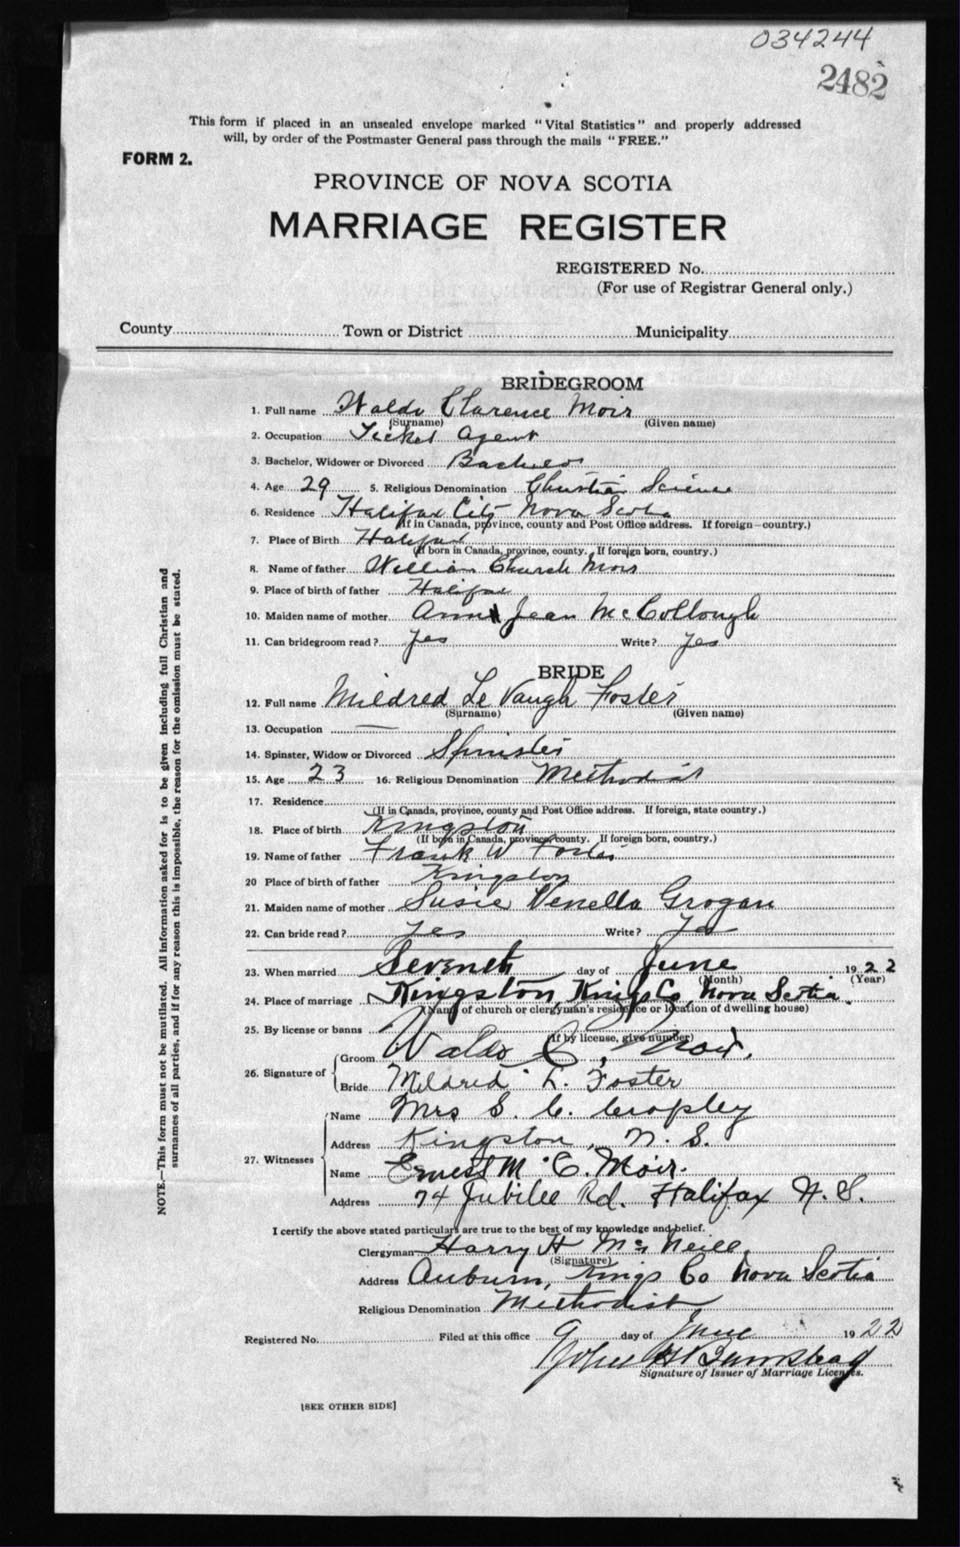 034244
2482
This form if placed in an unsealed envelope marked "Vital Statistics" and properly addressed
will, by order of the Postmaster General pass through the mails "FREE."
FORM 2.
PROVINCE OF NOVA SCOTIA
MARRIAGE REGISTER
REGISTERED No.
(For use of Registrar General only.)
County Town or District Municipality
BRIDEGROOM
1. Full name Waldo Clarence Moir
(Surname) (Given name)
2. Occupation Ticket Agent
3. Bachelor, Widower or Divorced Bachelor
4. Age 29 5. Religious Denomination Christian Science
6. Residence Halifax City Nova Scotia
(If in Canada, province, county and Post Office address. If foreign—country.)
7. Place of Birth Halifax
(If born in Canada, province, county. If foreign born, country.)
8. Name of father William Church Moir
9. Place of birth of father Halifax
10. Maiden name of mother Annie Jean McCollough
11. Can bridegroom read? yes Write? yes
BRIDE
12. Full name Mildred Le Vaugh Foster
(Surname) (Given name)
13. Occupation —
14. Spinster, Widow or Divorced Spinster
15. Age 23 16. Religious Denomination Methodist
17. Residence
(If in Canada, province, county and Post Office address. If foreign, state country.)
18. Place of birth Kingston
(If born in Canada, province, county. If foreign born, country.)
19. Name of father Frank W Foster
20 Place of birth of father Kingston
21. Maiden name of mother Susie Venella Grogan
22. Can bride read? Yes Write? Yes
23. When married Seventh day of June 1922
(Month) (Year)
24. Place of marriage Kingston, Kings Co, Nova Scotia.
(Name of church or clergyman's residence or location of dwelling house)
25. By license or banns
(If by license, give number)
26. Signature of
Groom Waldo C. Moir.
Bride Mildred L. Foster
27. Witnesses
Name Mrs S. C. Cropley
Address Kingston, N. S.
Name Ernest M. C. Moir.
Address 74 Jubilee Rd. Halifax N. S.
I certify the above stated particulars are true to the best of my knowledge and belief.
Clergyman Harry H McNeill.
(Signature)
Address Auburn, Kings Co Nova Scotia
Religious Denomination Methodist
Registered No. Filed at this office 9 day of June 1922
John H
Signature of Issuer of Marriage Licenses.
[SEE OTHER SIDE]
NOTE.—This form must not be mutilated. All information asked for is to be given including full Christian and
surnames of all parties, and if for any reason this is impossible, the reason for the omission must be stated.